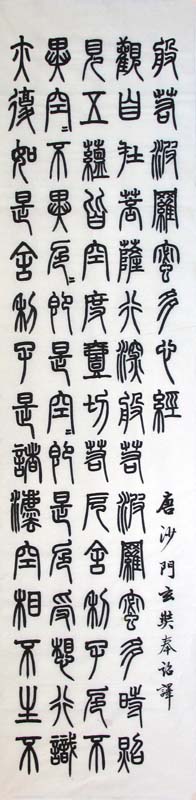 般若波羅蜜多心經
唐沙門玄奘奉詔譯
觀自在菩薩行深般若波羅蜜多時照
見五蘊皆空度壹切苦厄舍利子色不
異空〻不異色〻即是空〻即是色受想行識
亦復如是舍利子是諸灋空相不生不